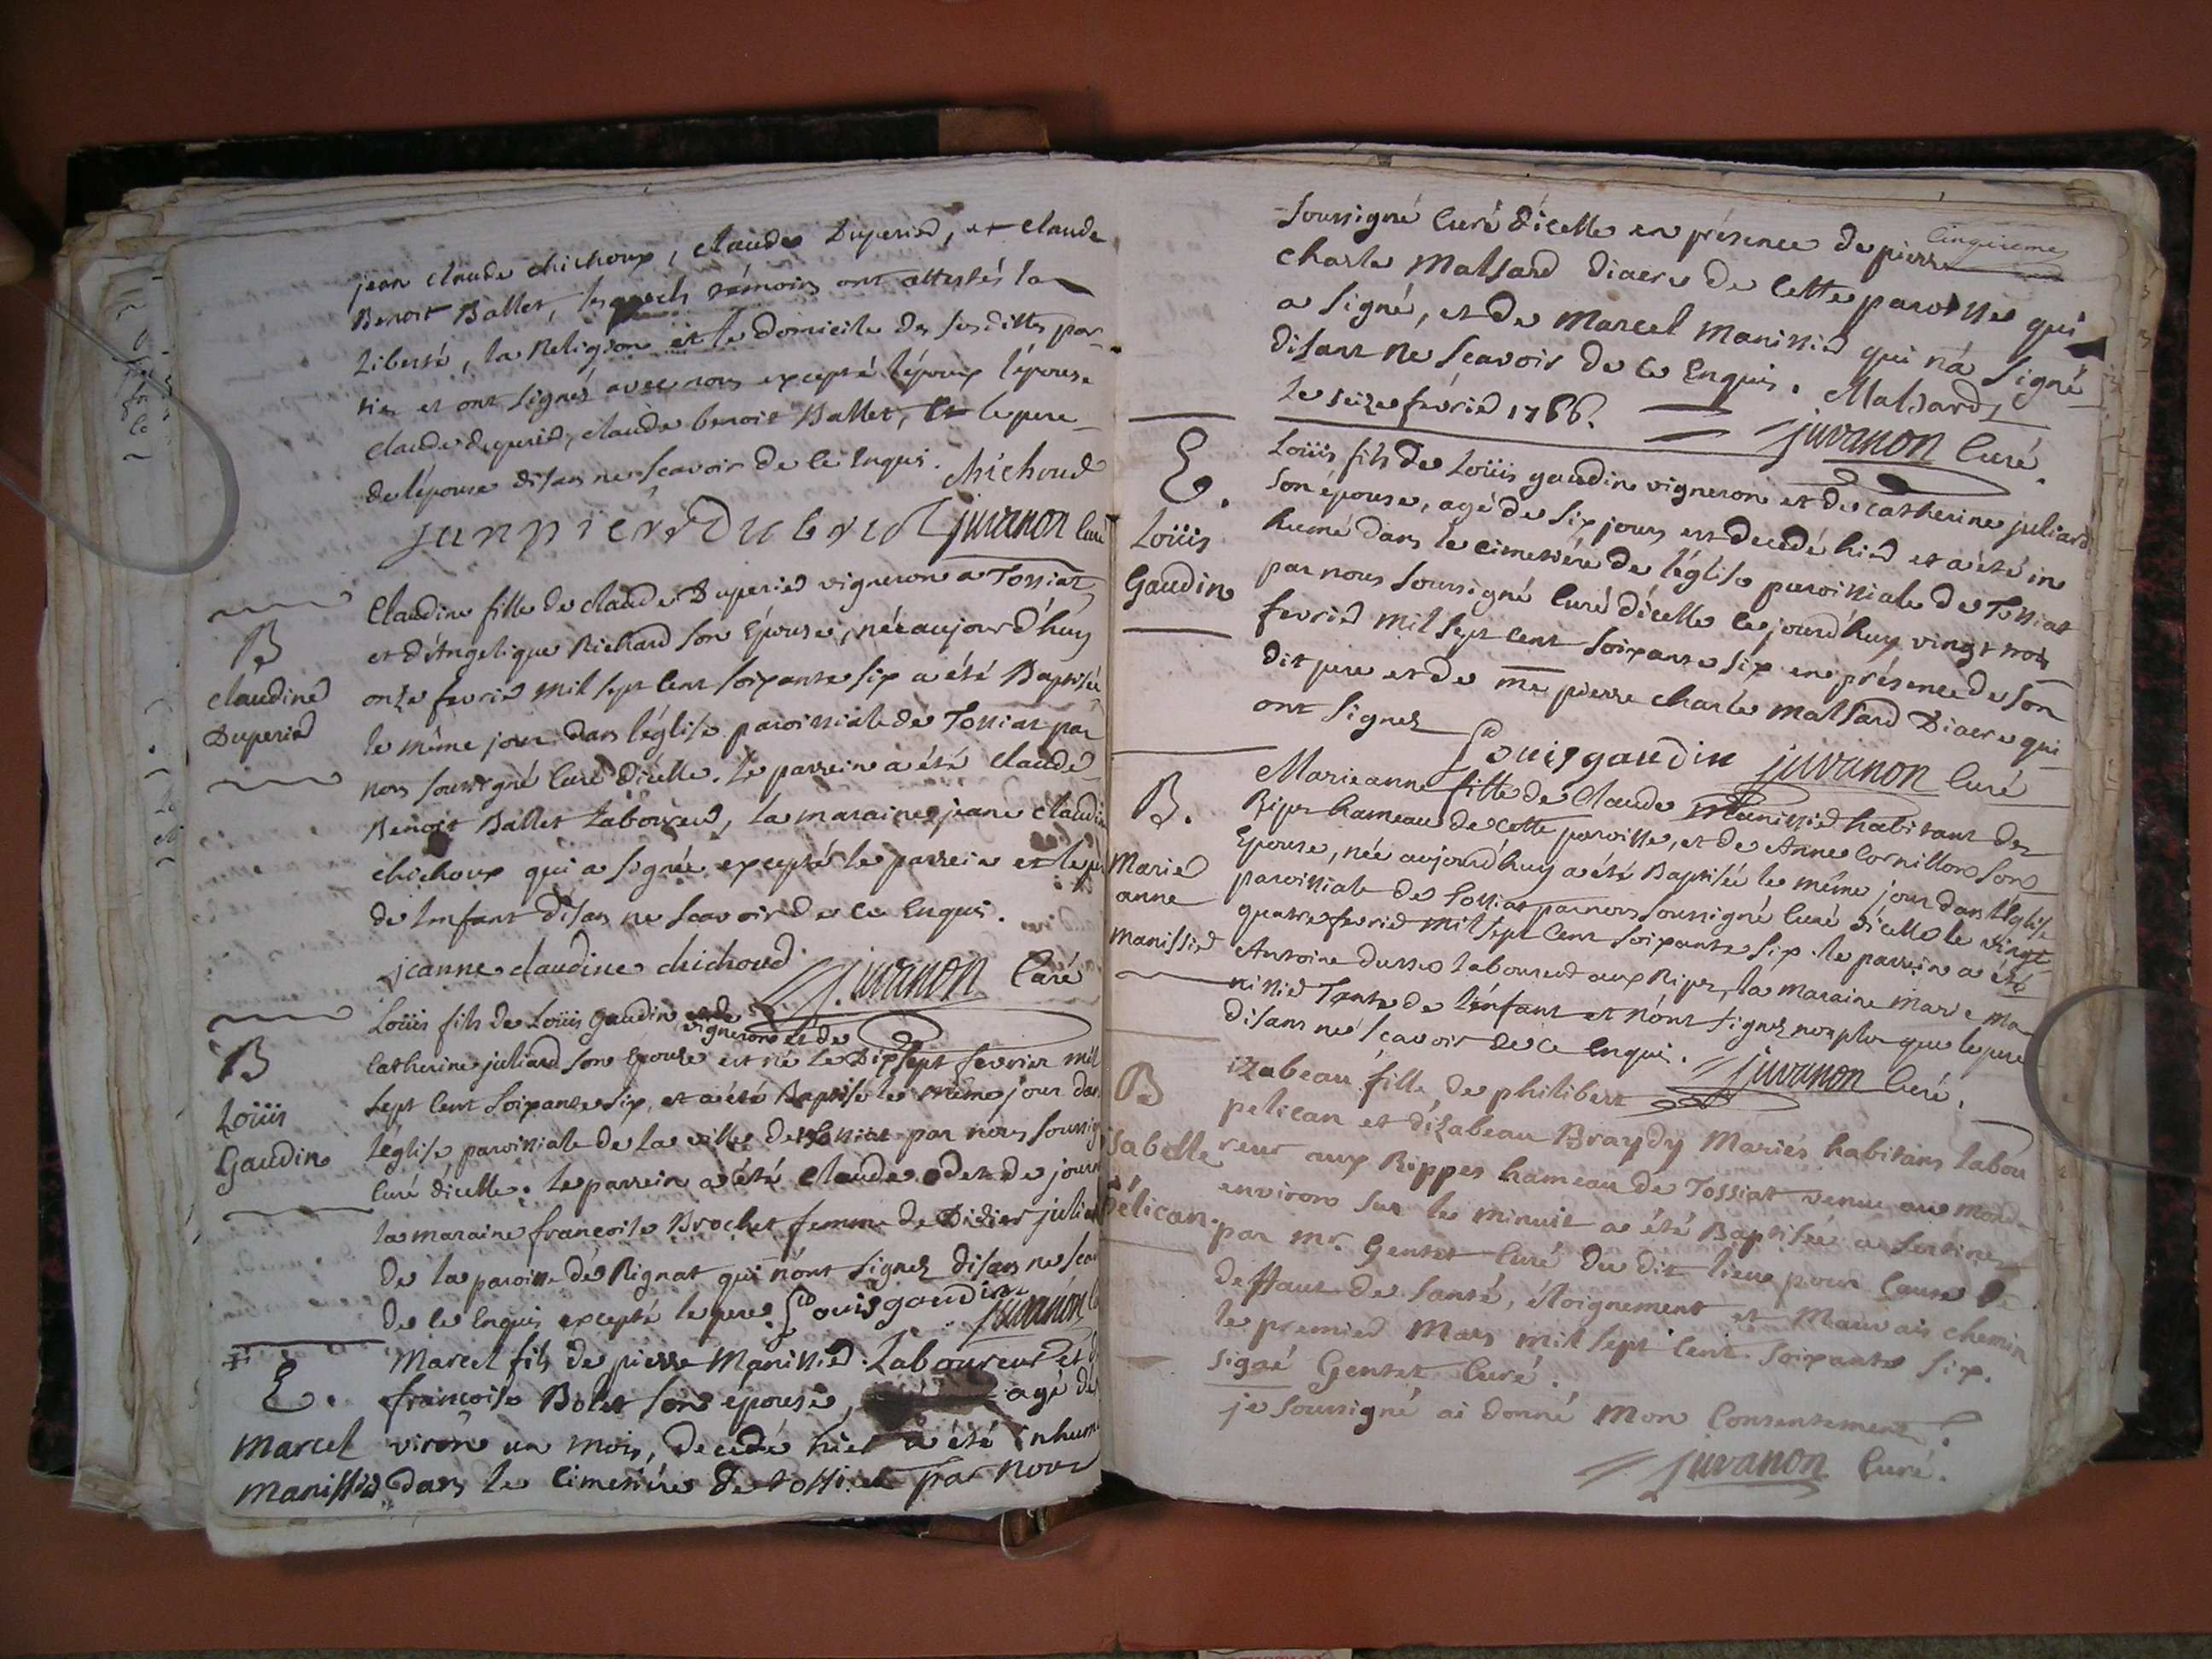 jean claude chichoux, claude Duperier, et claude
Benoit Ballet, lesquels témoins ont attestés la
Liberté, la Religion et le domicile des susdittes par-
ties et ont signés avec nous excepté l'époux l'épouse
claude duperier, claude benoit Ballet, et le pere
de l'épouse disans ne scavoir de ce Enquis. chichoud
juvanon Curé
B
claudine
Duperier
Claudine fille de claude Duperier vigneron a Tossiat
et d'Angelique Richard son Epouse, née aujourd'huy
onze fevrier mil sept cent soixante six a été Baptisée
le même jour dans l'église paroissiale de Tossiat par
nous soussigné Curé d'icelle. Le parrein a été claude
Benoit Ballet Laboureur, la maraine jeane claudine
chichoux qui a signée excepté le parrein et le pere
de lenfant disans ne scavoir de ce Enquis.
jeanne claudine chichoud
juvanon Curé
B
Loüis
Gaudin
Loüis fils de Loüis Gaudin
vigneron et de
Catherine juliard son Epouse est né le Dixsept fevrier mil
sept cent soixante six, et a été Baptisé le même jour dans
l'église paroissiale de la ville de Tossiat par nous soussigné
Curé d'icelle. Le parrein a été Claude odet de journ
la maraine francoise Brochet femme de Didier juliard
de la paroisse de Rignat qui n'ont signez disans ne scav
de ce Enquis excepté le pere. Louis gaudin
juvanon
E.
Marcel
Manissier
Marcel fils de pierre Manissier Laboureur et d
francoise Bolet son épouse, agé d'en
viron un mois, decedé hier a été inhumé
dans le cimetière de tossiat par nous
Cinquieme
soussigné Curé d'icelle en présence de pierre
charle Malsard diacre de cette paroisse qui
a signé, et de Marcel Manissier qui n'a signé
disant ne scavoir de ce Enquis. Malsard
le seize fevrier 1766.
juvanon Curé.
E.
Loüis
Gaudin
Loüis fils de Loüis gaudin vigneron et de catherine juliard
son épouse, agé de six jours est decedé hier et a été in
humé dans le cimetière de l'église paroissiale de Tossiat
par nous soussigné Curé d'icelle ce jourd'huy vingt trois
fevrier mil sept cent soixante six en présence de son
dit pere et de me pierre charle malsard Diacre qui
ont signez
Louis gaudin juvanon Curé
B.
Marie
anne
Manissier
Marieanne fille de Claude Manissier habitant des
Ripes hameau de cette paroisse, et de Anne Cornillon son
Epouse, née aujourd'huy a été Baptisée le même jour dans l'église
paroissiale de Tossiat par nous soussigné Curé d'icelle le vingt
quatre fevrier mil sept cent soixante six. le parrein a été
Antoine dusse laboureur aux Ripes, la maraine marie ma
nissier Tante de l'enfant et n'ont signez nonplus que le pere
disans ne scavoir de ce Enquis. juvanon Curé.
B
isabelle
Pélican.
izabeau fille de philibert
pelican et d'izabeau Braydy Mariés habitans labou
reur aux Rippes hameau de Tossiat venue au monde
environ sur le minuit a été Baptisée a Sertine
par mr. Gentet Curé du dit lieu pour cause de
deffaut de santé, éloignement et Mauvais chemin
le premier Mars mil sept cent soixante six.
signé Gentet Curé.
je soussigné ai donné mon consentement.
juvanon Curé.